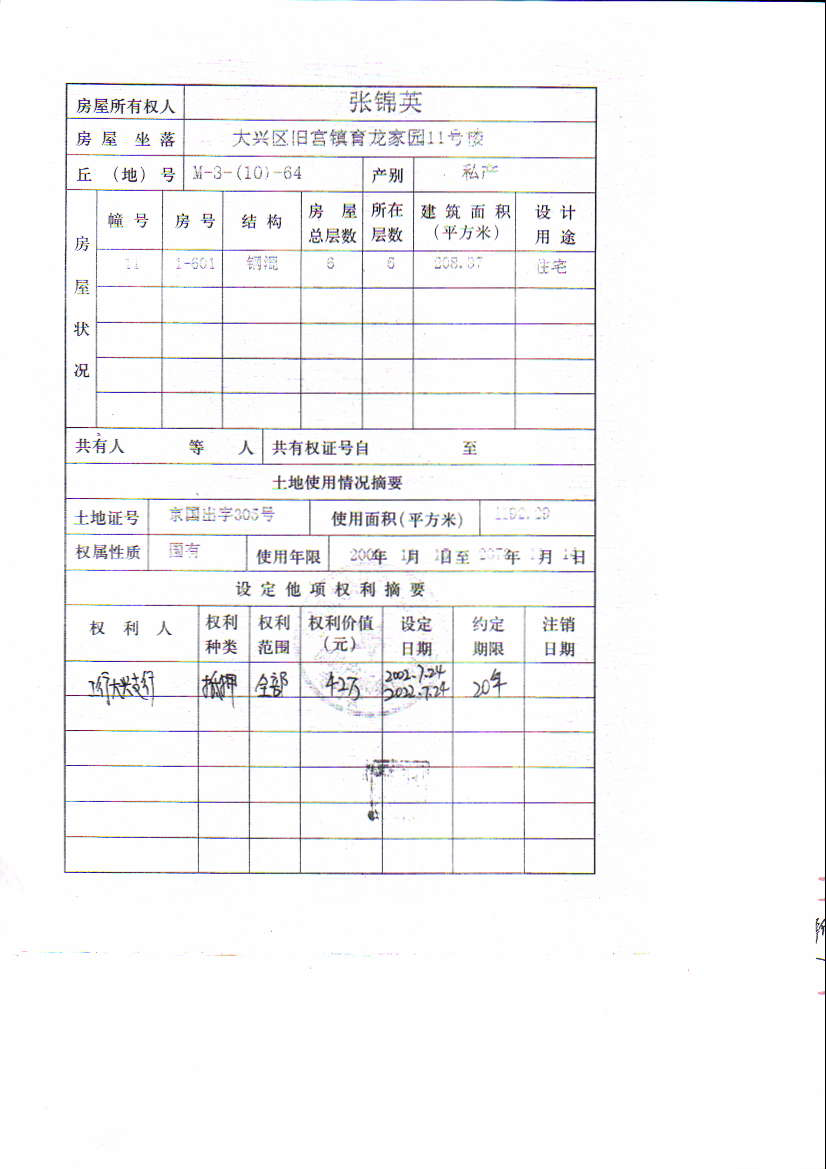 房屋所有权人 张锦英
房屋坐落 大兴区旧宫镇育龙家园11号楼
丘（地）号 M-3-(10)-64 产别 私产
房屋状况
幢号 房号 结构 房屋总层数 所在层数 建筑面积（平方米） 设计用途
11 1-601 钢混 6 6 208.37 住宅
共有人 等 人 共有权证号自 至
土地使用情况摘要
土地证号 京国出字305号 使用面积(平方米)
权属性质 国有 使用年限 年 月 日至 年 月 日
设定他项权利摘要
权利人 权利种类 权利范围 权利价值（元） 设定日期 约定期限 注销日期
工行大兴支行 抵押 全部 42万 2002.7.24 20年
2022.7.24